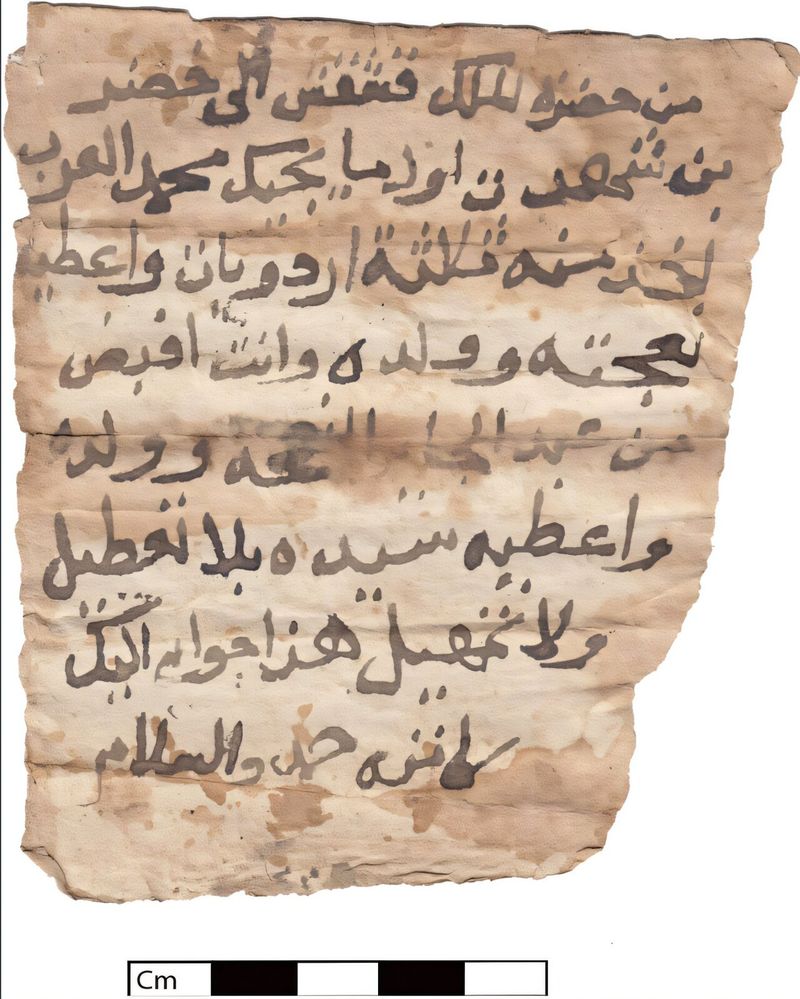 من حضرة الملك قشقش الى خضر
بن شهد ن اول ما يجيك محمد العرب
لخذ منه ثلاثة اردويات واعطيه
نعجته وولده وانت اقبض
من عبد الجابر النعجه وولده
واعطيه سيده بلا تعطيل
ولا تمهيل هذا جوابي اليك
كاتبه حمد والسلام